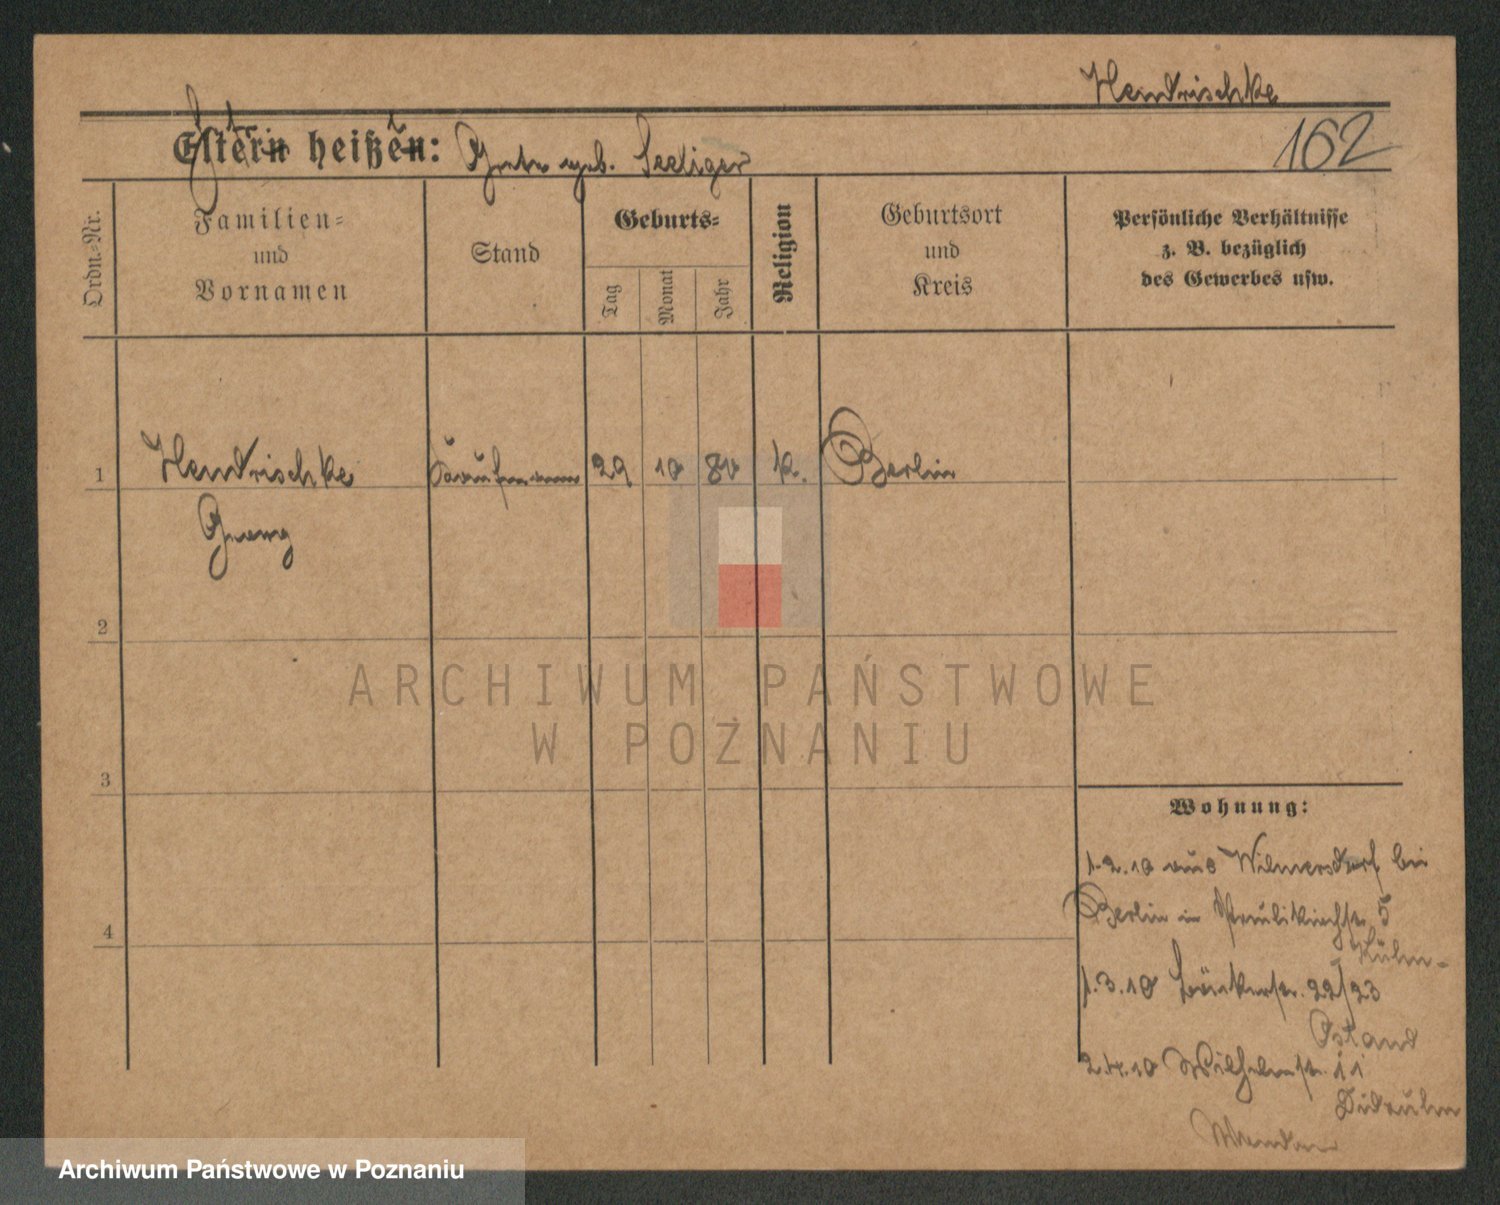 Hendrischke
162
Eltern heißen: Grete geb. Seeliger
Ordn.-Nr.
Familien-
und
Vornamen
Stand
Geburts-
Tag
Monat
Jahr
Religion
Geburtsort
und
Kreis
Persönliche Verhältnisse
z. B. bezüglich
des Gewerbes usw.
1 Hendrischke Kaufmann 29 10 80 k. Berlin
Georg
2
3
4
Wohnung:
1.2.10 aus Wilmersdorf bei
Berlin in Paulikirchstr. 5
Kühn-
1.3.10 Bäckerstr. 22/23
2.4.10 Wilhelmstr. 11
ARCHIWUM PAŃSTWOWE
W POZNANIU
Archiwum Państwowe w Poznaniu